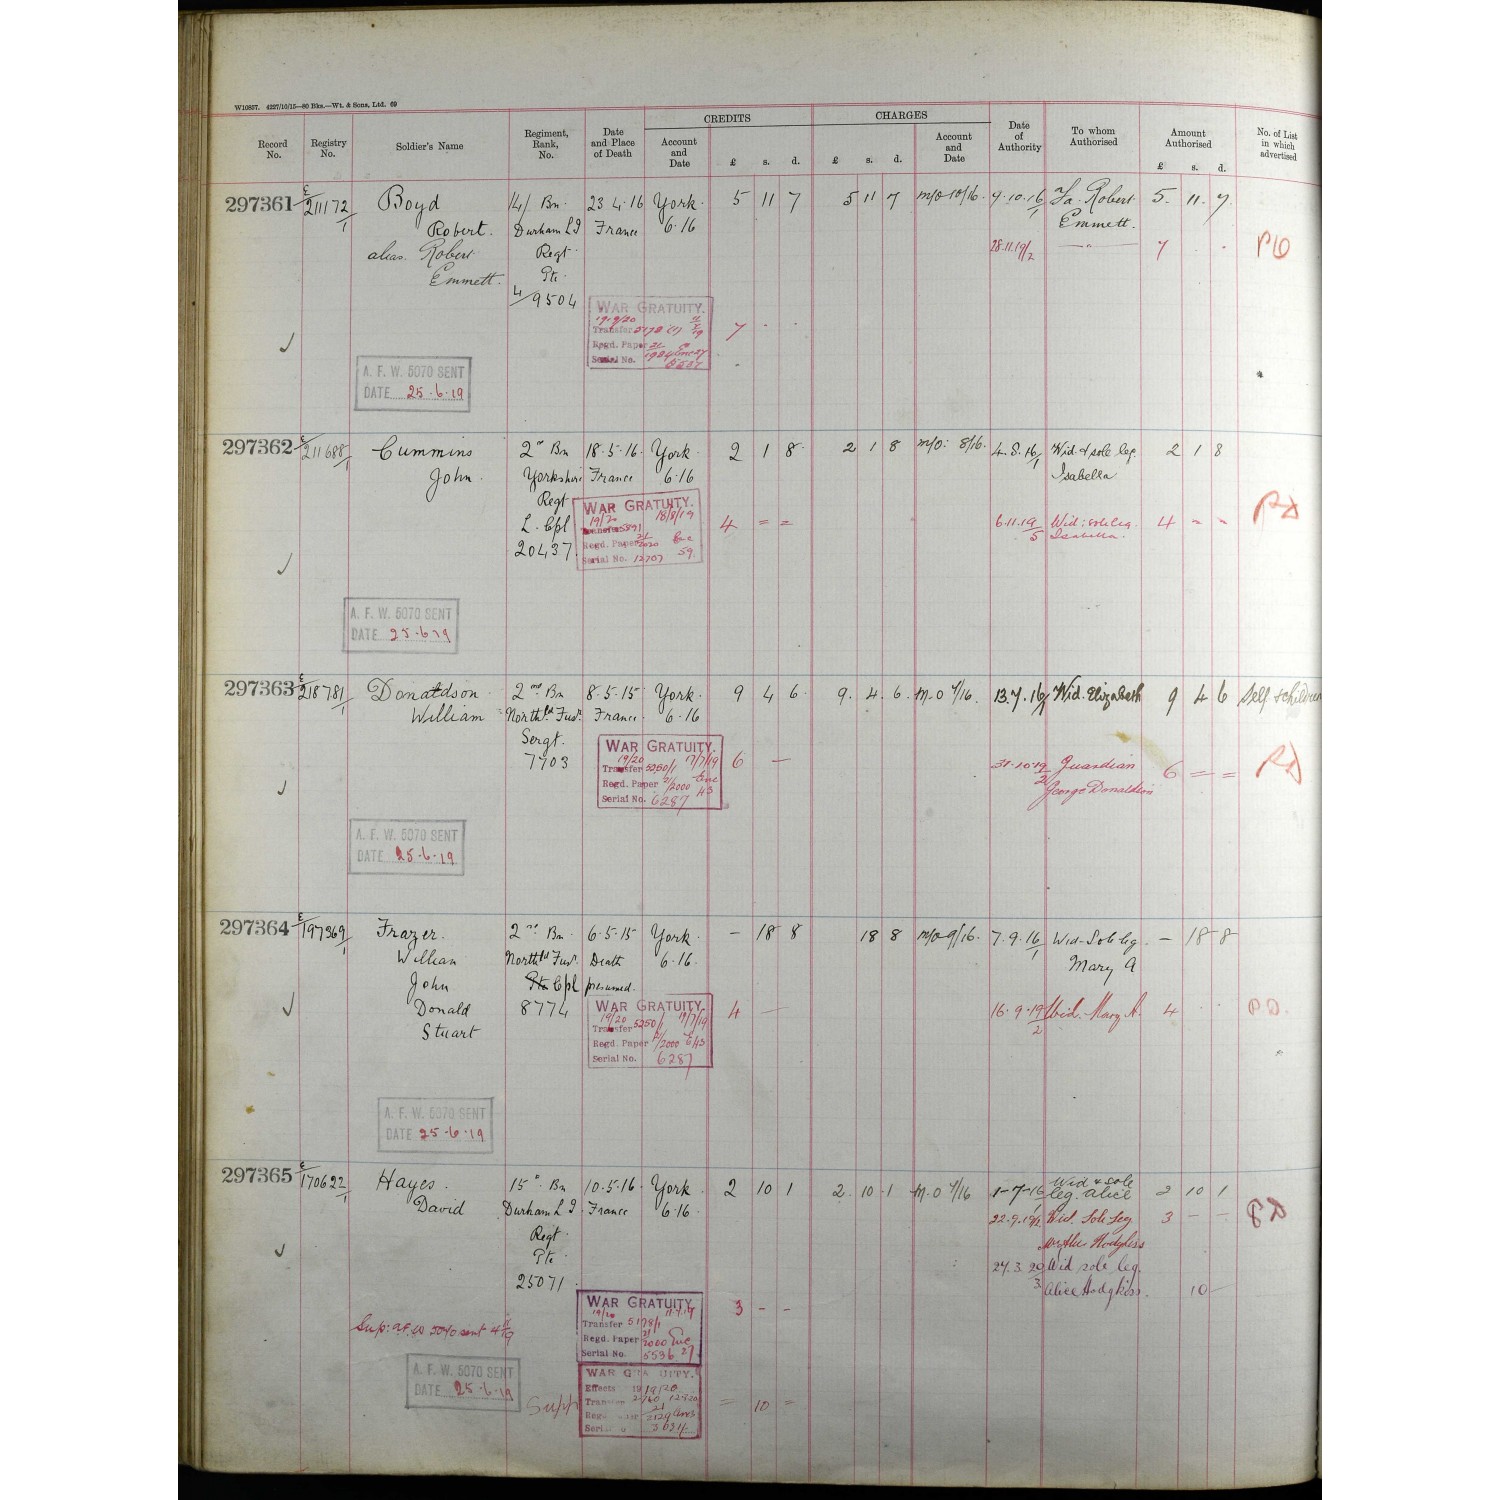 W10857. 4227/10/15—80 Bks.—Wt. & Sons, Ltd. 69
Record No.
Registry No.
Soldier's Name
Regiment, Rank, No.
Date and Place of Death
CREDITS
Account and Date
£ s. d.
CHARGES
£ s. d.
Account and Date
Date of Authority
To whom Authorised
Amount Authorised
£ s. d.
No. of List in which advertised
297361 E/211172/1 Boyd 14/ Bn. 23.4.16 York. 5 11 7 5 11 7 M/O 10/16. 9.10.16/1 Fa. Robert 5. 11. 7.
Robert. Durham L I France 6.16 Emmett.
alias. Robert Regt 28.11.19/2 — " — 7 . . PD
Emmett. Pte
4/9504
WAR GRATUITY.
1919/20
Transfer 5178 (1) 7 . .
Regd. Paper
Serial No.
A. F. W. 5070 SENT
DATE 25.6.19
297362 E/211688/1 Cummins 2nd Bn 18.5.16. York. 2 1 8 2 1 8 M/O: 8/16. 4.8.16/1 Wid. & sole leg. 2 1 8
John. Yorkshire France 6.16 Isabella
Regt
L. Cpl
20437
WAR GRATUITY.
19/20 18/8/19
Transfer 5391 4 = = 6.11.19/5 Wid: sole leg. 4 - - PD
Isabella.
Regd. Paper 21/2020 Enc
Serial No. 12707 59
A. F. W. 5070 SENT
DATE 25.6.19
297363 E/218781/1 Donaldson 2nd Bn 8.5.15 York. 9 4 6. 9. 4. 6. M.O 7/16. 13.7.16/1 Wid. Elizabeth 9 4 6 Self & children
William North'ld Fus'r France. 6.16
Sergt.
7703
WAR GRATUITY.
19/20 17/7/19 6 — 31.10.19/2 Guardian 6 = = PD
Transfer 5250/1 George Donaldson
Regd. Paper 21/2000 Enc
Serial No. 6287 43
A. F. W. 5070 SENT
DATE 25.6.19
297364 E/197369/1 Frazer. 2nd Bn. 6.5.15 York. — 18 8 18 8 M/O 9/16. 7.9.16/1 Wid. Sole leg. — 18 8
William North'ld Fus'r Death 6.16. Mary A
John Pte Cpl presumed.
Donald 8774
Stuart
WAR GRATUITY.
19/20 17/7/19 4 — 16.9.19/2 Wid. Mary A. 4 . . P.D.
Transfer 5250/1
Regd. Paper 21/2000 E/43
Serial No. 6287
A. F. W. 5070 SENT
DATE 25.6.19
297365 E/170622/1 Hayes. 15th Bn 10.5.16. York. 2 10 1 2. 10 1 M.O 7/16 1-7-16/1 Wid & sole 2 10 1
leg. Alice
David Durham L I France 6.16. 22.9.19/2 Wid. Sole Leg 3 — — PD
Regt Hodgkiss
Pte 24.3.20/3 Wid sole leg.
25071 Alice Hodgkiss. 10 —
WAR GRATUITY.
19/20 3 - -
Transfer 5178/1
Regd. Paper 21/2000 Enc
Serial No. 5536 27
Sup: AFW 5070 sent
A. F. W. 5070 SENT
DATE 25.6.19
WAR GRATUITY.
Effects 1919/20
Supp = 10 =